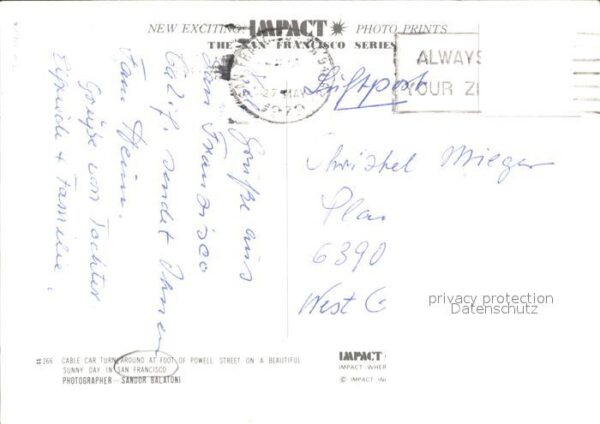 NEW EXCITING IMPACT PHOTO PRINTS
THE SAN FRANCISCO SERIES
SAN FRANCISCO
27 MAY
ALWAYS
YOUR ZI
Luftpost
Viel Grüße aus
San Francisco
Calif. sendet Ihnen
Fam Hein.
Grüße von Tochter
+ Familie.
Christhel Mieger
Plan
6390
West G
privacy protection
Datenschutz
#266 CABLE CAR TURN AROUND AT FOOT OF POWELL STREET ON A BEAUTIFUL
SUNNY DAY IN SAN FRANCISCO
PHOTOGRAPHER - SANDOR BALATONI
IMPACT
IMPACT WHER
© IMPACT